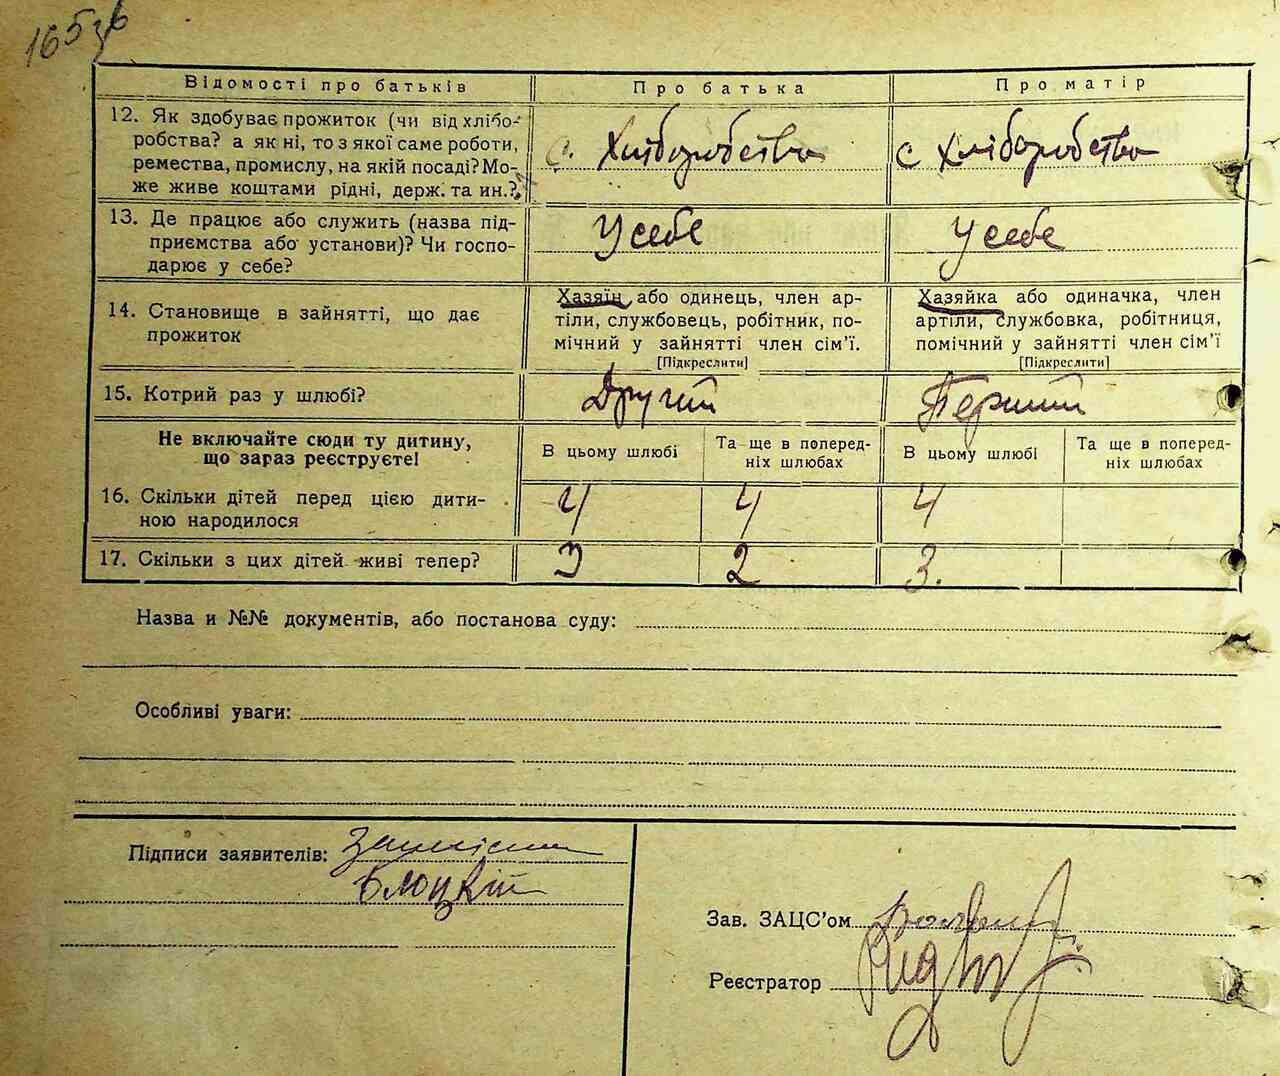 165зв
Відомості про батьків Про батька Про матір
12. Як здобуває прожиток (чи від хлібо-
робства? а як ні, то з якої саме роботи,
ремества, промислу, на якій посаді? Мо-
же живе коштами рідні, держ. та ин.?
с. Хліборобства с хліборобства
13. Де працює або служить (назва під-
приємства або установи)? Чи госпо-
дарює у себе?
У себе У себе
14. Становище в зайнятті, що дає
прожиток
Хазяїн або одинець, член ар-
тіли, службовець, робітник, по-
мічний у зайнятті член сім'ї.
[Підкреслити]
Хазяйка або одиначка, член
артіли, службовка, робітниця,
помічний у зайнятті член сім'ї
[Підкреслити]
15. Котрий раз у шлюбі? Другий Перший
Не включайте сюди ту дитину,
що зараз реєструєте!
В цьому шлюбі
Та ще в поперед-
ніх шлюбах
В цьому шлюбі
Та ще в поперед-
ніх шлюбах
16. Скільки дітей перед цією дити-
ною народилося
4 4 4
17. Скільки з цих дітей живі тепер? 3 2 3.
Назва и №№ документів, або постанова суду:
Особливі уваги:
Підписи заявителів:
Блоцкій
Зав. ЗАЦС'ом
Реєстратор